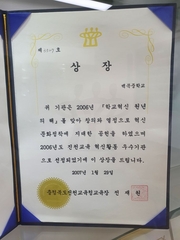 상 장
위 기관은 2006년 「학교혁신 원년
의 해」를 맞아 창의와 열정으로 혁신
문화정착에 지대한 공헌을 하였으며
2006년도 진천교육 혁신활동 우수기관
으로 선정되었기에 이 상장을 드립니다.
2007년 1월 26일
충청북도진천교육청교육장